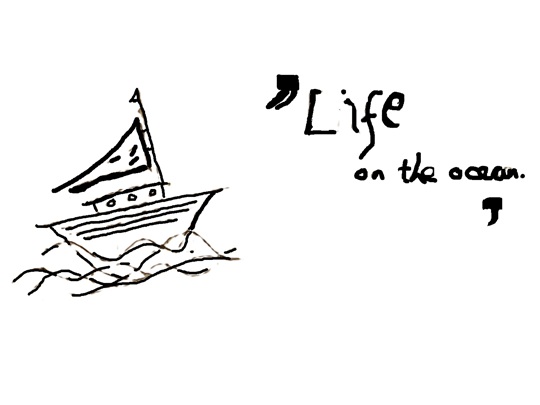 "Life
on the ocean.
"